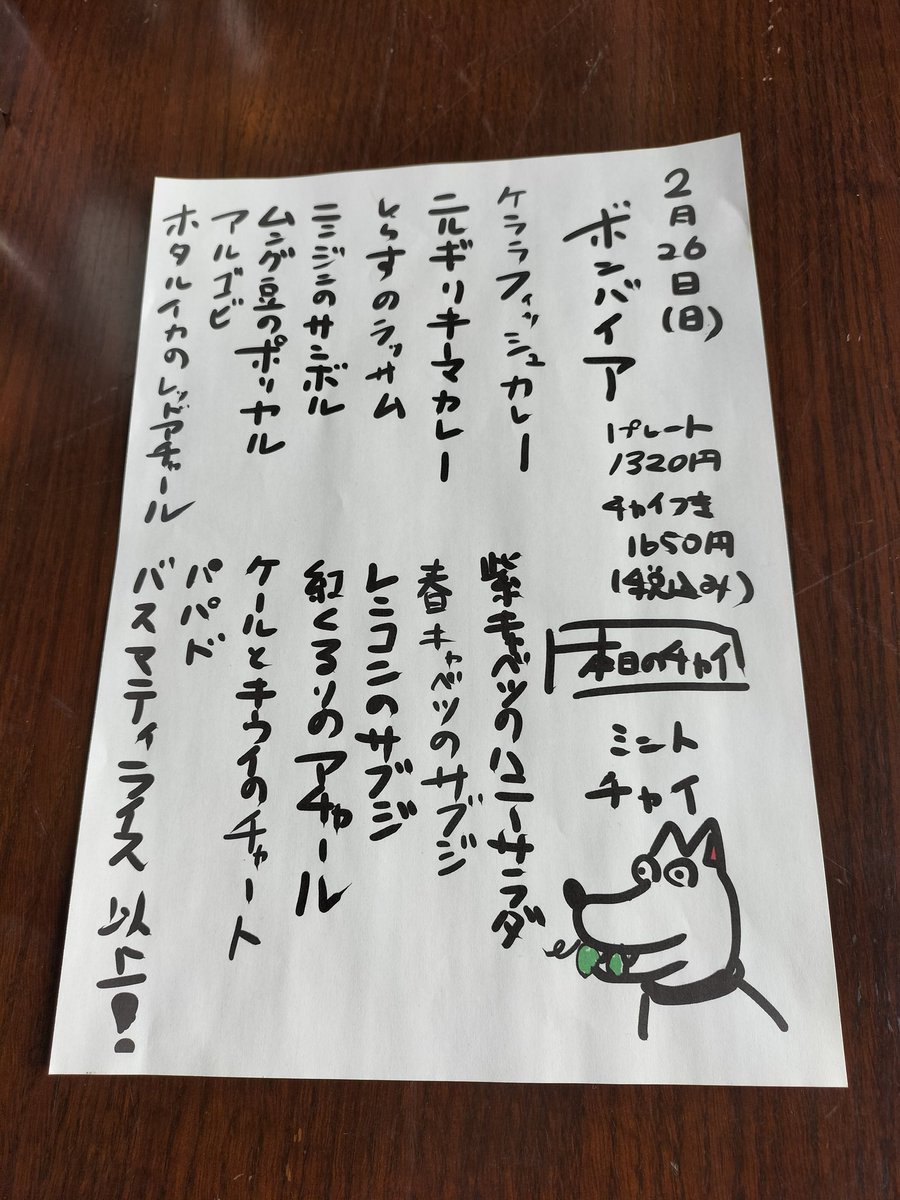 2月26日(日)
ボンバイア
1プレート
1320円
チャイつき
1650円
(税込み)
本日のチャイ
ミント
チャイ
ケララフィッシュカレー
ニルギリキーマカレー
しらすのラッサム
ニンジンのサンボル
ムング豆のポリヤル
アルゴビ
ホタルイカのレッドアチャール
紫キャベツのハニーサラダ
春キャベツのサブジ
レンコンのサブジ
紅くるりのアチャール
ケールとキウイのチャート
パパド
バスマティライス 以上!